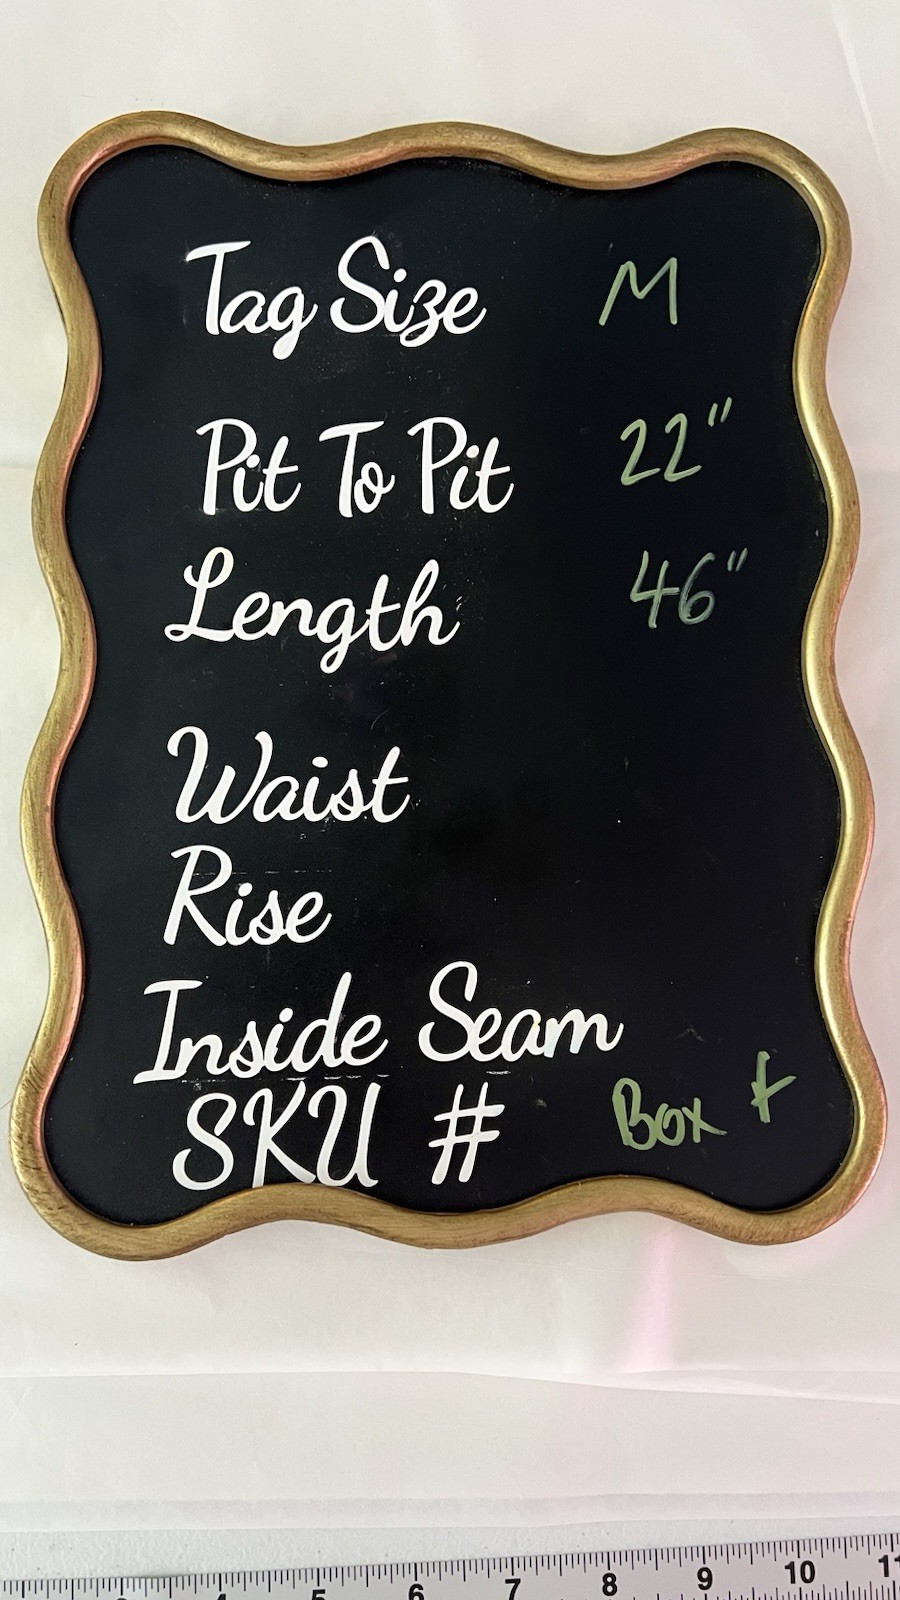 Tag Size M
Pit To Pit 22"
Length 46"
Waist
Rise
Inside Seam
SKU # Box
4 5 6 7 8 9 10 11